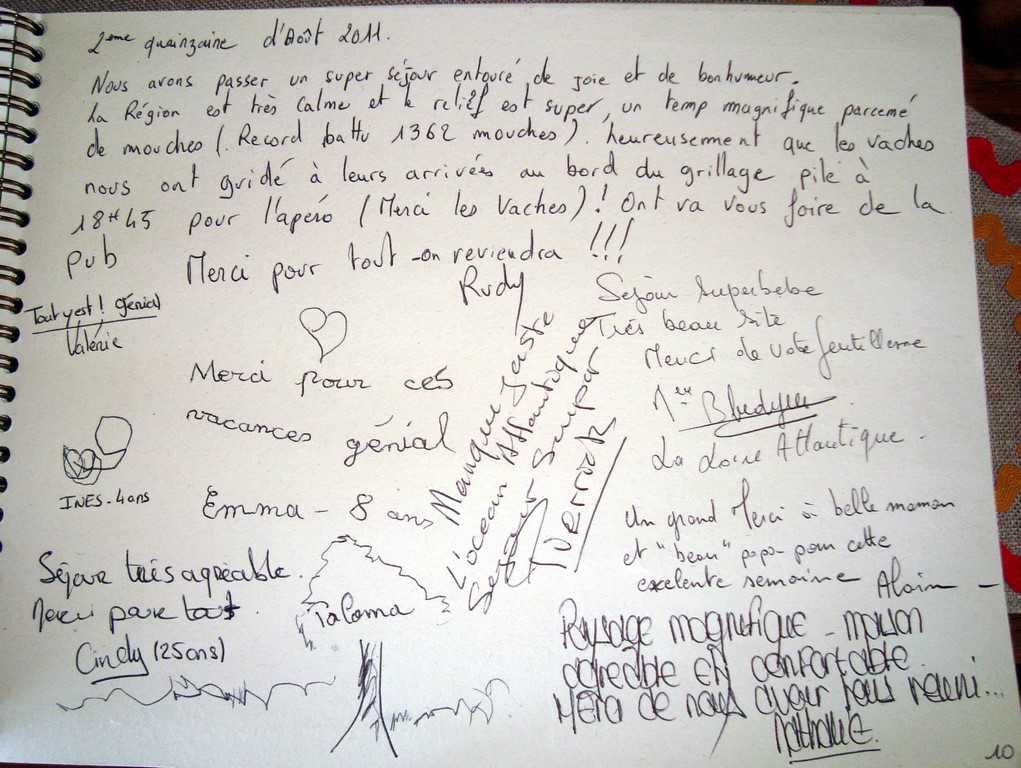 2ème quainzaine d'Août 2011.
Nous avons passer un super séjour entouré de joie et de bonhumeur.
La Région est très calme et le relief est super, un temp magnifique parcemé
de mouches (. Record battu 1362 mouches). heureusement que les vaches
nous ont guidé à leurs arrivées au bord du grillage pile à
18H45 pour l'apéro (Merci les Vaches)! Ont va vous faire de la
pub
Merci pour tout - on reviendra !!!
Rudy
Tout y est! Génial
Valérie
Merci pour ces
vacances génial
Emma - 8 ans
INES - 4 ans
Manque juste
l'océan Atlantique
Séjour Super
Séjour superbebe
Très beau site
Merci de votre
La Loire Atlantique.
Un grand Merci à belle maman
et "beau" papa pour cette
excelente semaine Alain -
Séjour très agréable.
Merci pour tout
Cindy (25ans)
Paloma
Paysage magnifique - maison
agréable et confortable
Merci de nous avoir tous réuni...
Nathalie.
10